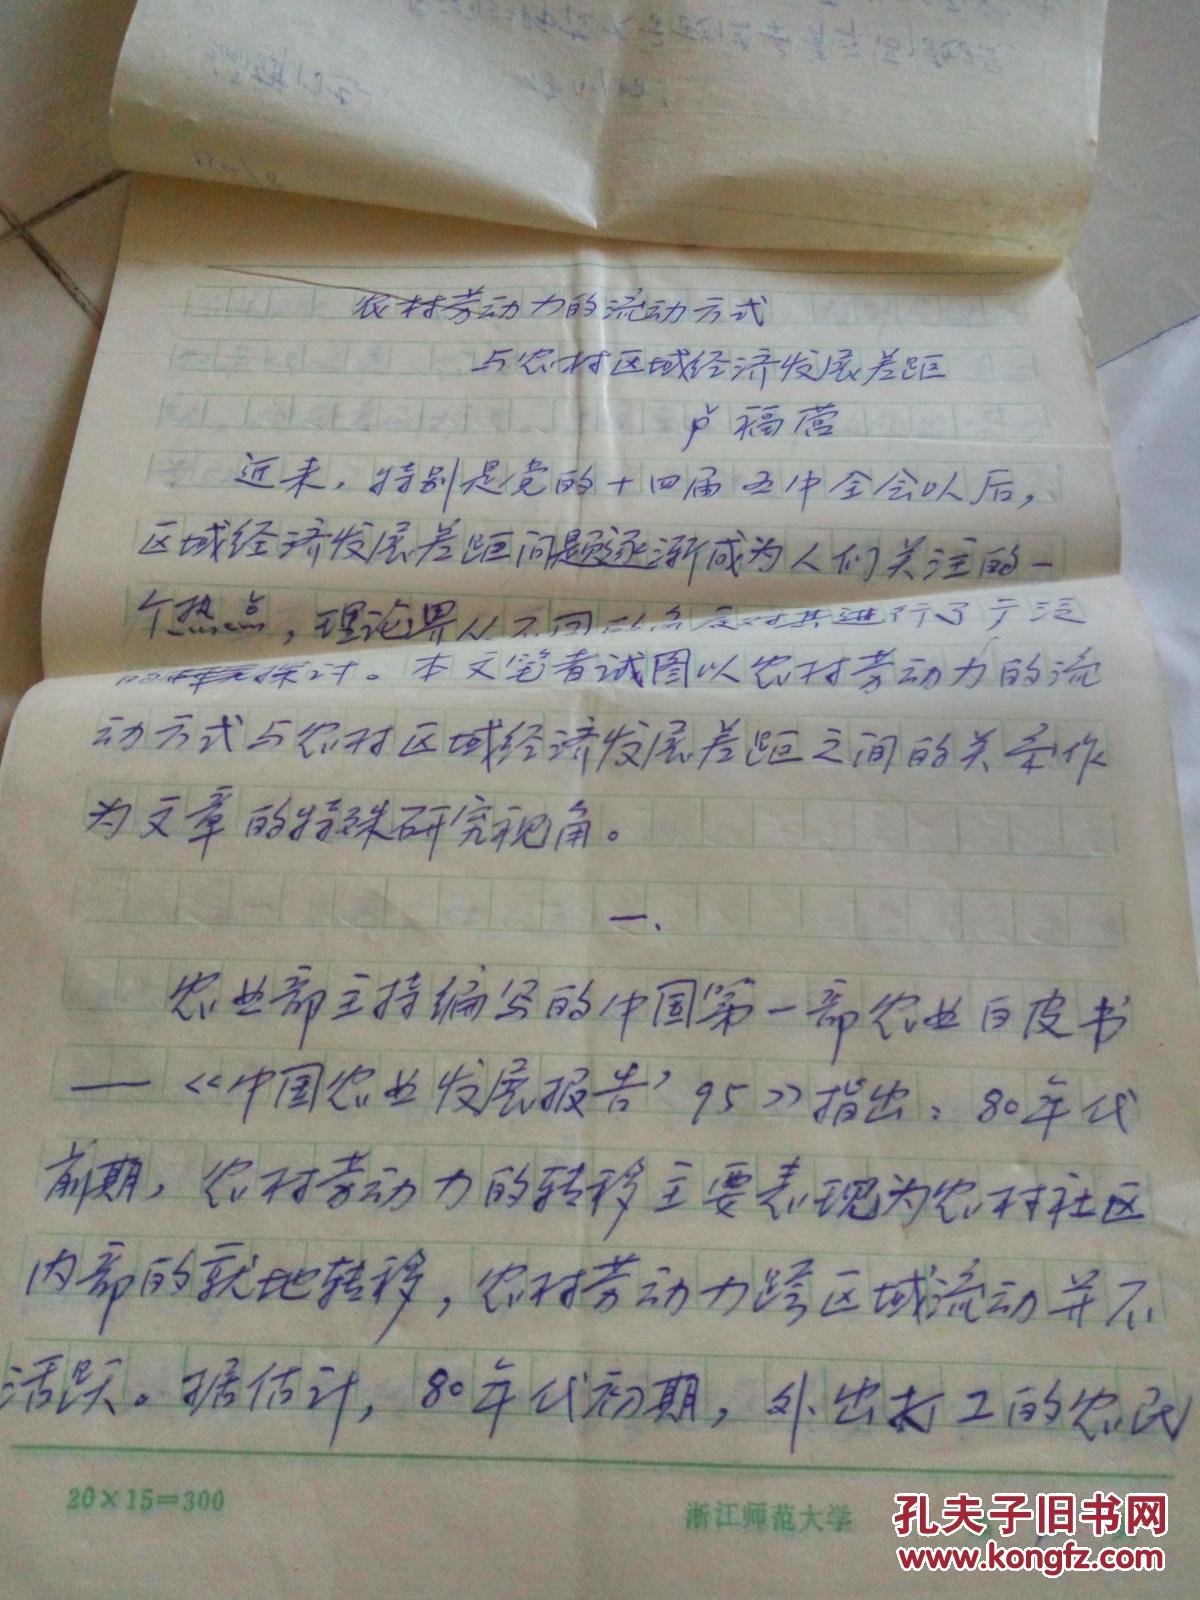 农村劳动力的流动方式
与农村区域经济发展差距
卢福营
近来，特别是党的十四届五中全会以后，
区域经济发展差距问题逐渐成为人们关注的一
个热点，理论界从不同的角度对其进行了广泛
的探讨。本文笔者试图以农村劳动力的流
动方式与农村区域经济发展差距之间的关系作
为文章的特殊研究视角。
一、
农业部主持编写的中国第一部农业白皮书
——《中国农业发展报告’95》指出：80年代
前期，农村劳动力的转移主要表现为农村社区
内部的就地转移，农村劳动力跨区域流动并不
活跃。据估计，80年代初期，外出打工的农民
20×15=300
浙江师范大学
孔夫子旧书网
www.kongfz.com